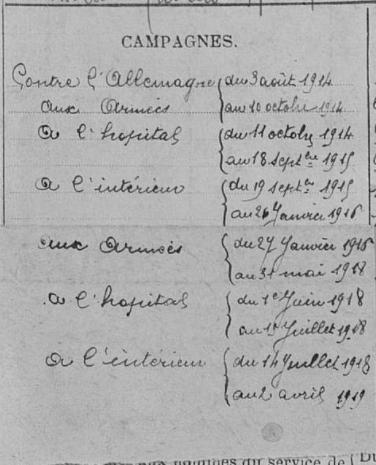 CAMPAGNES.
Contre l'Allemagne { du 3 août 1914
aux Armées { au 10 octobre 1914
a l'hopital { du 11 octobre 1914
{ au 18 septbre 1915
a l'intérieur { du 19 septbre 1915
{ au 26 Janvier 1916
aux Armées { du 27 Janvier 1916
{ au 31 mai 1918
a l'hopital { du 1er Juin 1918
{ au Juillet 1918
a l'intérieur { du 14 Juillet 1918
{ au 2 avril 1919
du service de